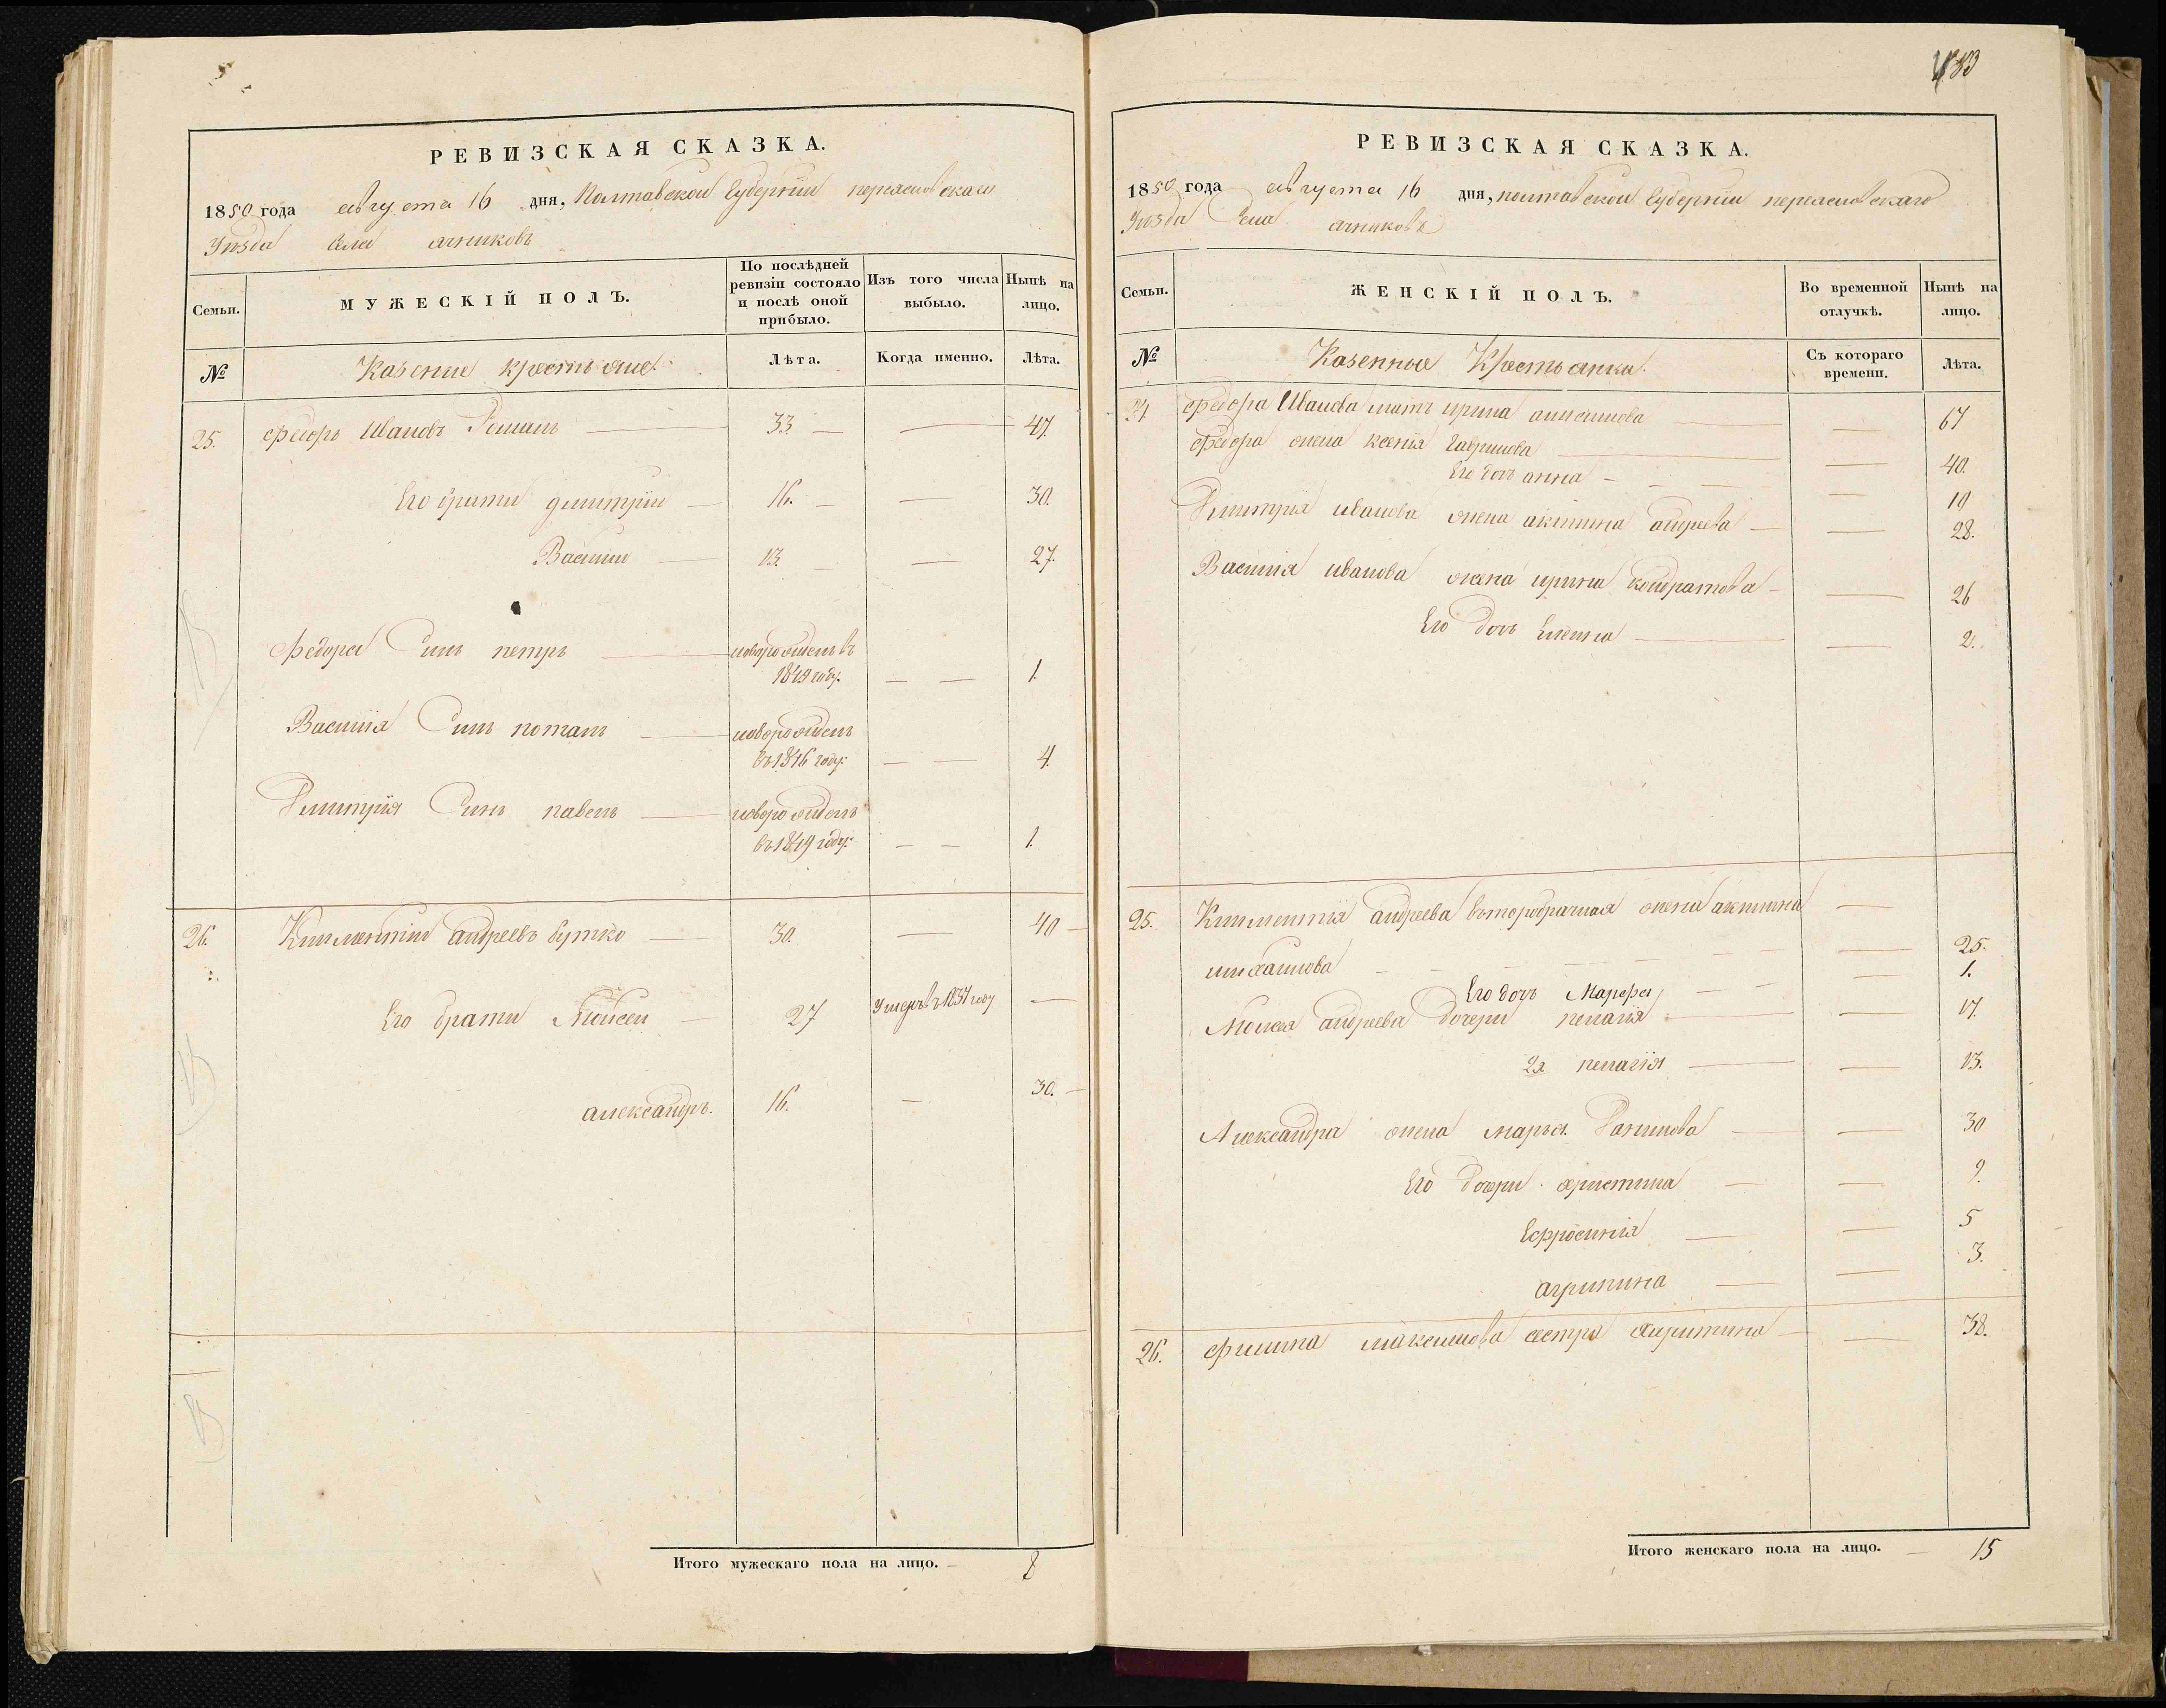 РЕВИЗСКАЯ СКАЗКА.
1850 года августа 16 дня, Полтавской Губерніи переясловскаго
Уѣзда Села ачниковъ
Семьи.
МУЖЕСКІЙ ПОЛЪ.
По послѣдней ревизіи состояло и послѣ оной прибыло.
Изъ того числа выбыло.
Нынѣ на лицо.
№
Казение крестьяне.
Лѣта.
Когда именно.
Лѣта.
25. Федоръ Ивановъ 33 — — 47.
Его брати дмитрій — 16. — — 30.
Василій — 13. — — 27.
Федора Синъ петръ — новорожденъ въ
1849 году. — — 1.
Василія Синъ потапъ — новорожденъ
въ 1846 году: — — 4.
Димитрія Синъ павелъ — новорожденъ
въ 1849 году: — — 1.
26. Климентій андреевъ бутко — 30. — 40 —
Его брати Моисей — 27 Умеръ въ 1837 году —
александръ. 16. — 30. —
Итого мужескаго пола на лицо. — 8
433
РЕВИЗСКАЯ СКАЗКА.
1850 года августа 16 дня, полтавской Губерніи переясловскаго
Уѣзда Села ачниковъ
Семьи.
ЖЕНСКІЙ ПОЛЪ.
Во временной отлучкѣ.
Нынѣ на лицо.
№
Казенные Крестьянки.
Съ котораго времени.
Лѣта.
24 Федора Иванова мать ирина — — 67
Федора жена ксенія Гаврилова — — 40.
Его дочь анна — — — 10
Димитрія иванова жена акилина андреева — — 28.
Василія иванова жена ирина кондратова — — 26
Его дочь Елена — — 2.
25. Климентія андреева второбрачная жена акилина —
михайлова — — — — — — 25.
Его дочь Марфа — — — 1.
Моисея андреева дочери пелагія — — 17.
2я пелагія — — 13.
Александра жена марья Данилова — — 30
Его дочери христина — — 9.
Ефросинія — — 5
агрипина — — 3.
26. Филипа максимова сестра Харитина — — 38.
Итого женскаго пола на лицо. — 15